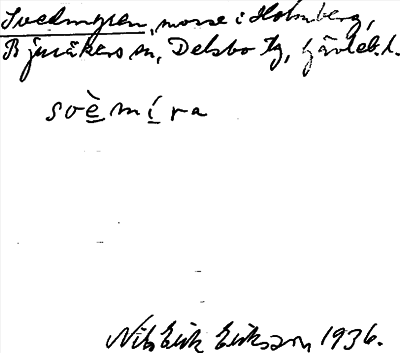 Svedmyren, mosse i Holmberg,
Bjuråkers sn, Delsbo tg, Gävleb. l.
soèmíra
Nils Erik Eriksson 1936.